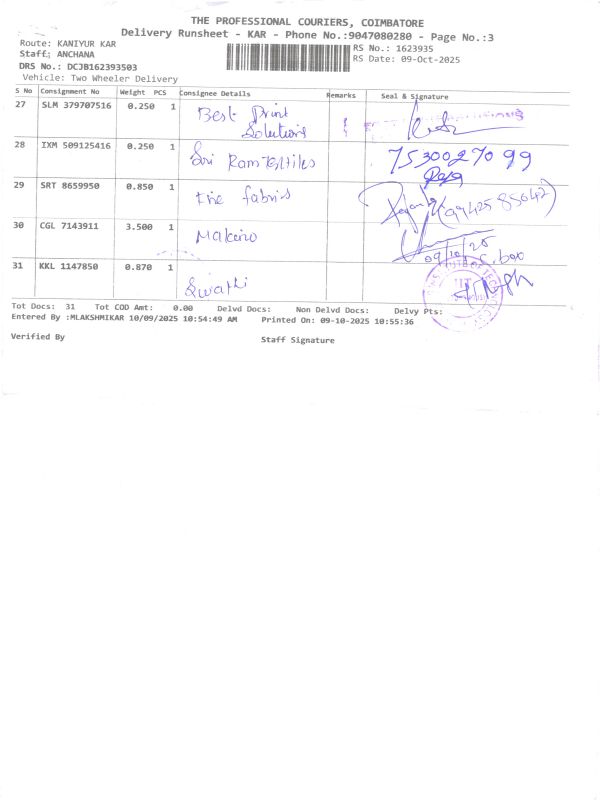 THE PROFESSIONAL COURIERS, COIMBATORE
Delivery Runsheet - KAR - Phone No.:9047080280 - Page No.:3
Route: KANIYUR KAR
RS No.: 1623935
Staff: ANCHANA
RS Date: 09-Oct-2025
DRS No.: DCJB162393503
Vehicle: Two Wheeler Delivery
S No Consignment No Weight PCS Consignee Details Remarks Seal & Signature
27 SLM 379707516 0.250 1 Best Print
Solutions
28 IXM 509125416 0.250 1 Sri Ram Textiles 7530027099
29 SRT 8659950 0.850 1 fabris (9942585642)
30 CGL 7143911 3.500 1 Makino
09/10/25
31 KKL 1147850 0.870 1 Swathi
Tot Docs: 31 Tot COD Amt: 0.00 Delvd Docs: Non Delvd Docs: Delvy Pts:
Entered By :MLAKSHMIKAR 10/09/2025 10:54:49 AM Printed On: 09-10-2025 10:55:36
Verified By Staff Signature